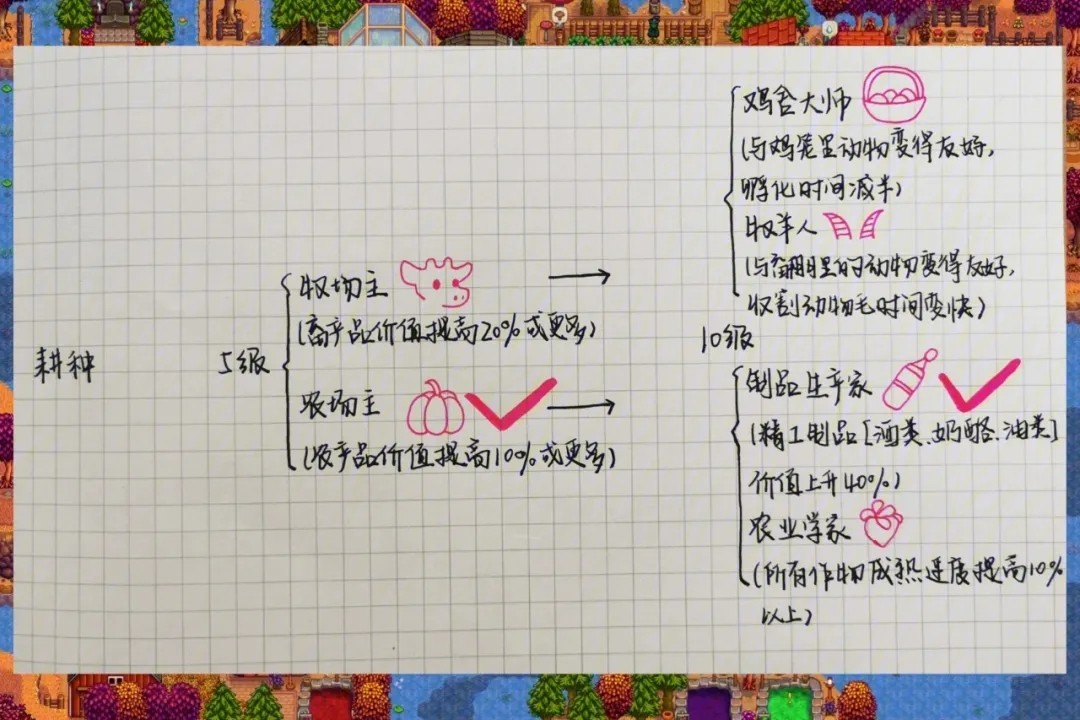 耕种
5级
牧场主
(畜产品价值提高20%或更多)
农场主
(农产品价值提高10%或更多)
10级
鸡舍大师
(与鸡笼里动物变得友好,
孵化时间减半)
牧羊人
(与畜棚里的动物变得友好,
收割动物毛时间变快)
制品生产家
(精工制品[酒类、奶酪、油类]
价值上升40%)
农业学家
(所有作物成熟速度提高10%
以上)